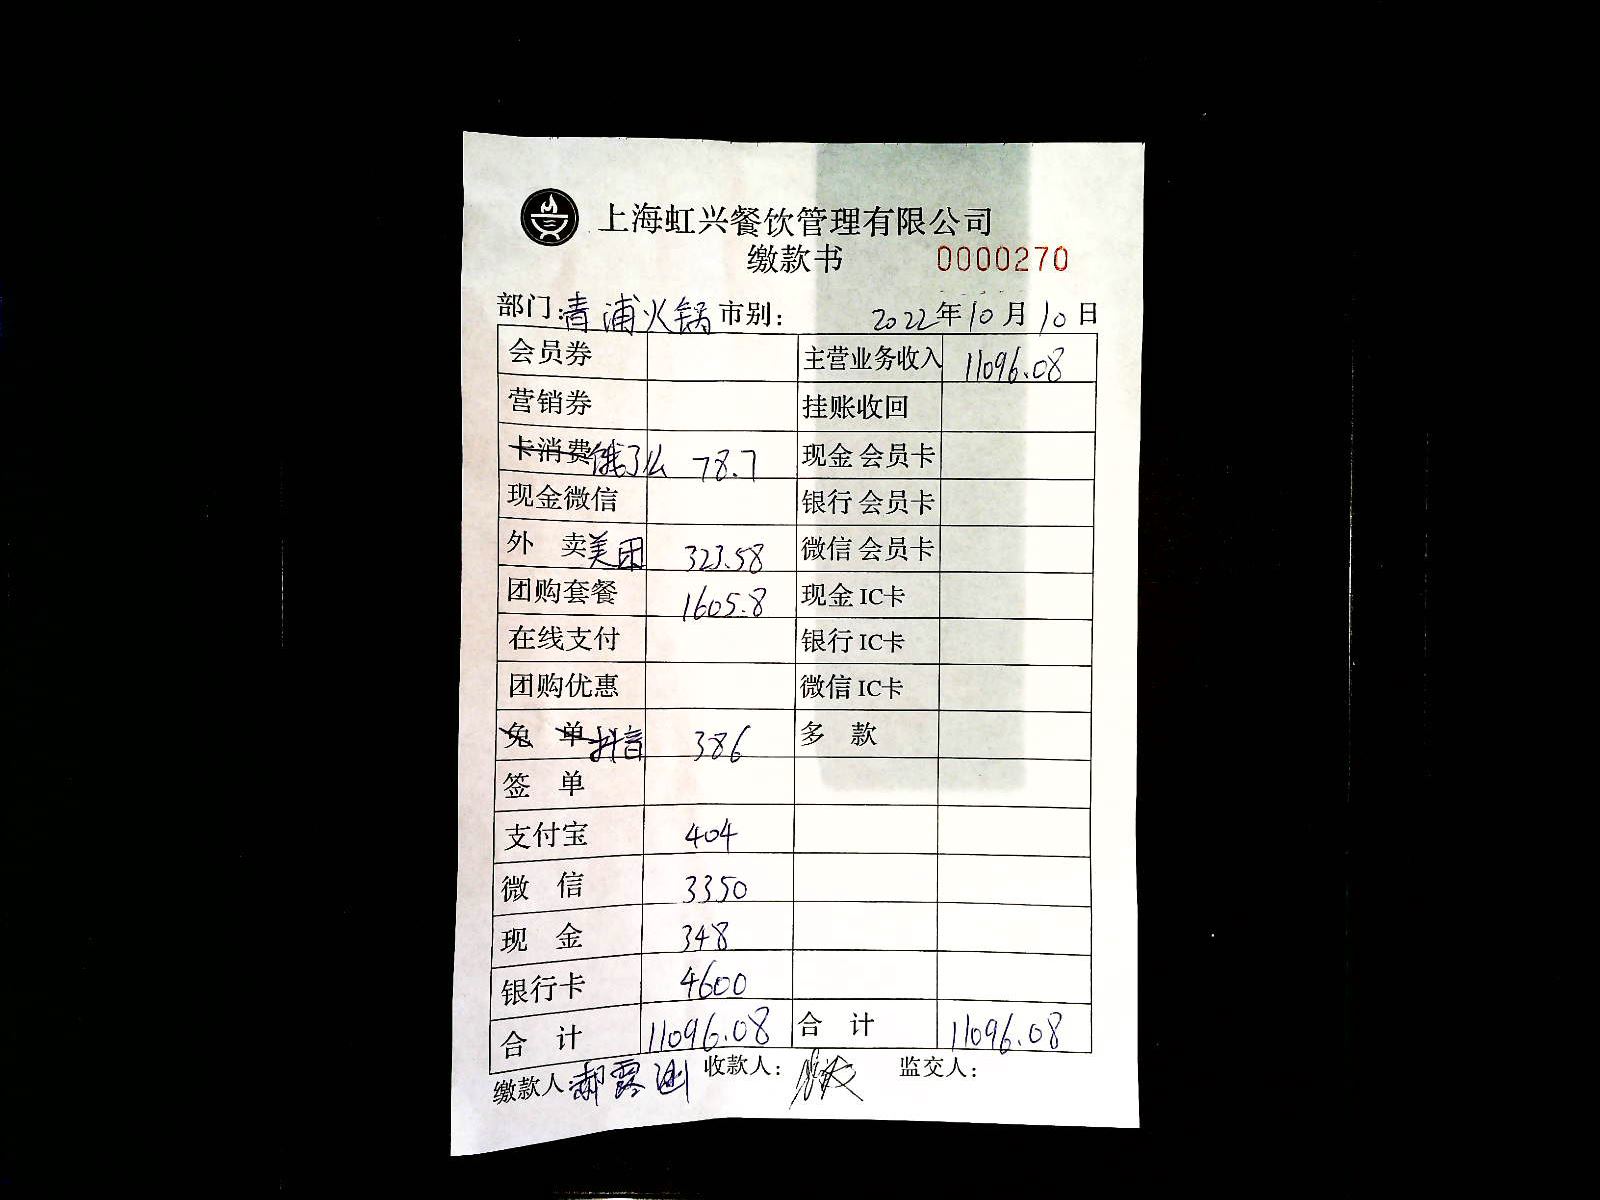 上海虹兴餐饮管理有限公司
缴款书 0000270
部门:青浦火锅 市别: 2022年10月10日
会员券 主营业务收入 11096.08
营销券 挂账收回
卡消费 饿了么 78.7 现金 会员卡
现金微信 银行 会员卡
外 卖 美团 323.58 微信 会员卡
团购套餐 1605.8 现金 IC卡
在线支付 银行 IC卡
团购优惠 微信 IC卡
免 单 抖音 386 多 款
签 单
支付宝 404
微 信 3350
现 金 348
银行卡 4600
合 计 11096.08 合 计 11096.08
缴款人: 收款人: 监交人: